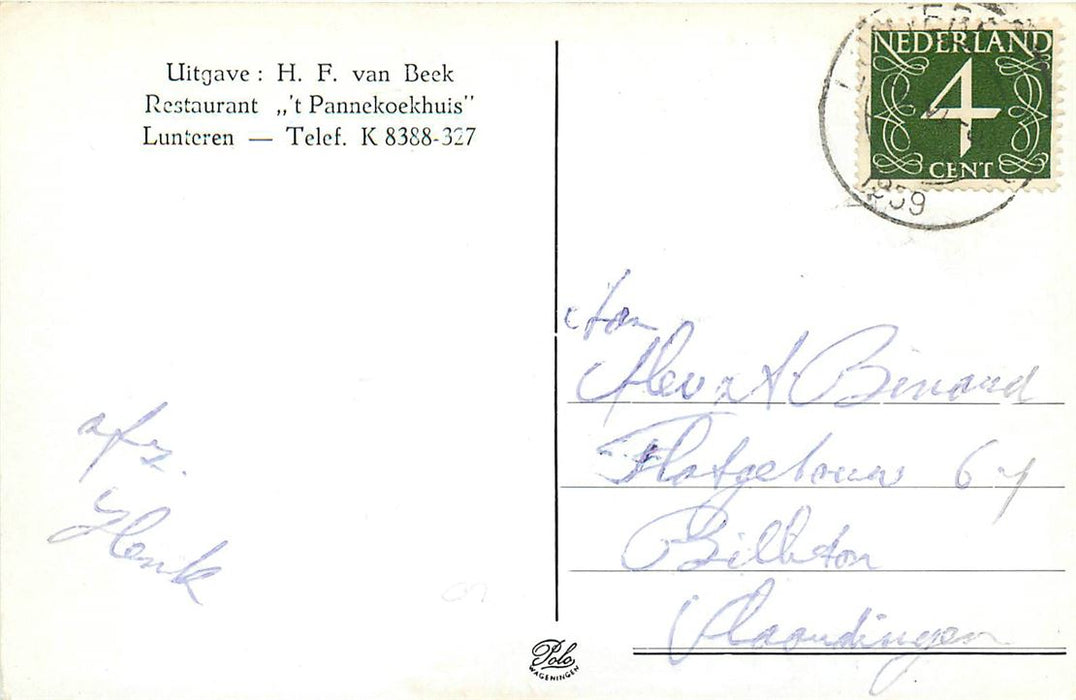 Uitgave : H. F. van Beek
Restaurant „'t Pannekoekhuis”
Lunteren — Telef. K 8388-327
NEDERLAND
4
CENT
Aan
A. Binand
Flatgebouw 6
Billiton
Vlaardingen
afz.
Henk
Polo
WAGENINGEN